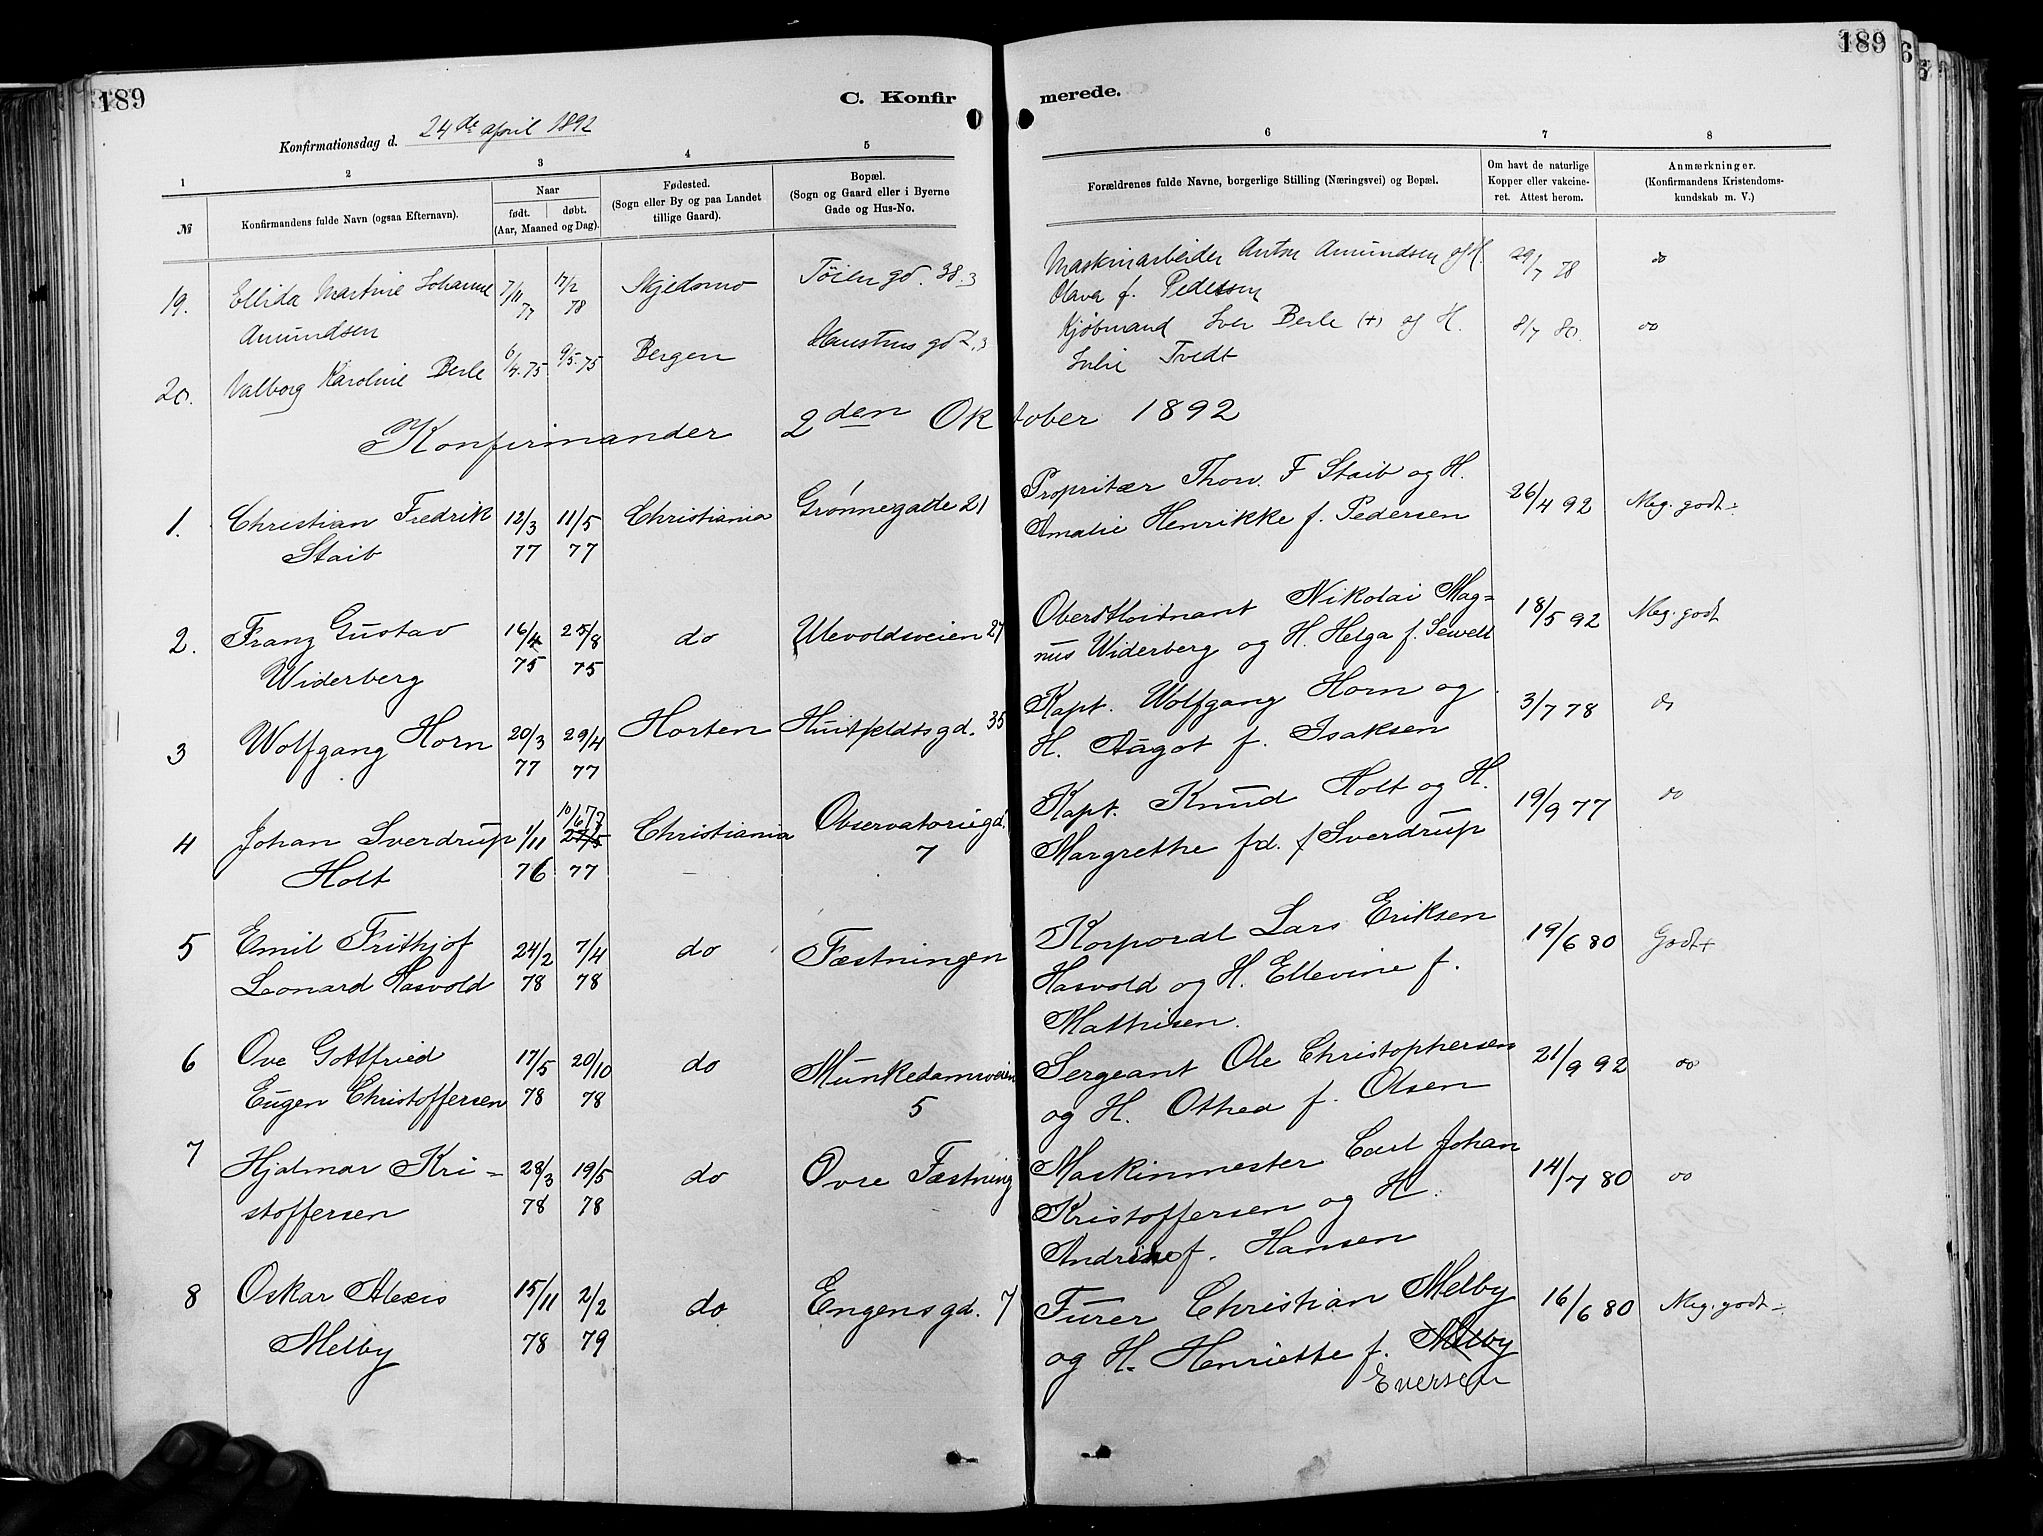 189
189
C. Konfirmerede.
Konfirmationsdag d. 24de april 1892
1 2 3 4 5 6 7 8
№
Konfirmandens fulde Navn (ogsaa Efternavn).
Naar
født. døbt.
(Aar, Maaned og Dag).
Fødested.
(Sogn eller By og paa Landet
tillige Gaard).
Bopæl.
(Sogn og Gaard eller i Byerne
Gade og Hus-No.
Forældrenes fulde Navne, borgerlige Stilling (Næringsvei) og Bopæl.
Om havt de naturlige
Kopper eller vakcine-
ret. Attest herom.
Anmærkninger.
(Konfirmandens Kristendoms-
kundskab m. V.)
19. Ellida Martine Johanne 7/11 17/2 Skjedsmo Tøiengd. 38.3 Maskinarbeider Anton Amundsen og H. 29/7 78 do
Amundsen 77 78 Olava f. Pedersen
20. Valborg Karoline Berle 6/4.75 9/5.75 Bergen gd 2.3 Kjøbmand Iver Berle (+) og H. 8/7 80. do
Julie Tvedt
Konfirmander 2den Oktober 1892
1. Christian Fredrik 12/3 11/5 Christiania Grønnegade 21 Propritær Thorv. F Staib og H. 26/4 92 Meg. godt÷
Staib 77 77 Amalie Henrikke f. Pedersen
2. Franz Gustav 16/4 25/8 do Ulevoldsveien 27 Oberstloitnant Nikolai Mag= 18/5 92 Meg. godt
Widerberg 75 75 nus Widerberg og H. Helga f. Sewell
3 Wolfgang Horn 20/3 29/4 Horten Huitfeldtsgd. 35 Kapt. Wolfgang Horn og 3/7 78 do
77 77 H. Aagot f. Isaksen
4 Johan Sverdrup 1/11 10/6 77 27/5 Christiania Observatoriegd. Kapt. Knud Holt og H. 19/9 77 do
Holt 76 77 7 Margrethe fd. f Sverdrup
5 Emil Frithjof 24/2 7/4 do Fæstningen Korporal Lars Eriksen 19/6 80 Godt+
Leonard Hasvold 78 78 Hasvold og H. Ellevine f.
Mathisen.
6 Ove Gottfried 17/5 20/10 do Munkedamsveien Sergeant Ole Christophersen 21/9 92 do
Eugen Christoffersen 78 78 5 og H. Othea f. Olsen
7 Hjalmar Kri- 28/3 19/5 do Ovre Fæstning Maskinmester Carl Johan 14/7 80 do
stoffersen 78 78 Kristoffersen og H.
Andrine f. Hansen
8 Oskar Alexis 15/11 2/2 do Engensgd. 7 Furer Christian Melby 16/6 80 Meg. godt÷
Melby 78 79 og H. Henriette f. Melby
Eversen